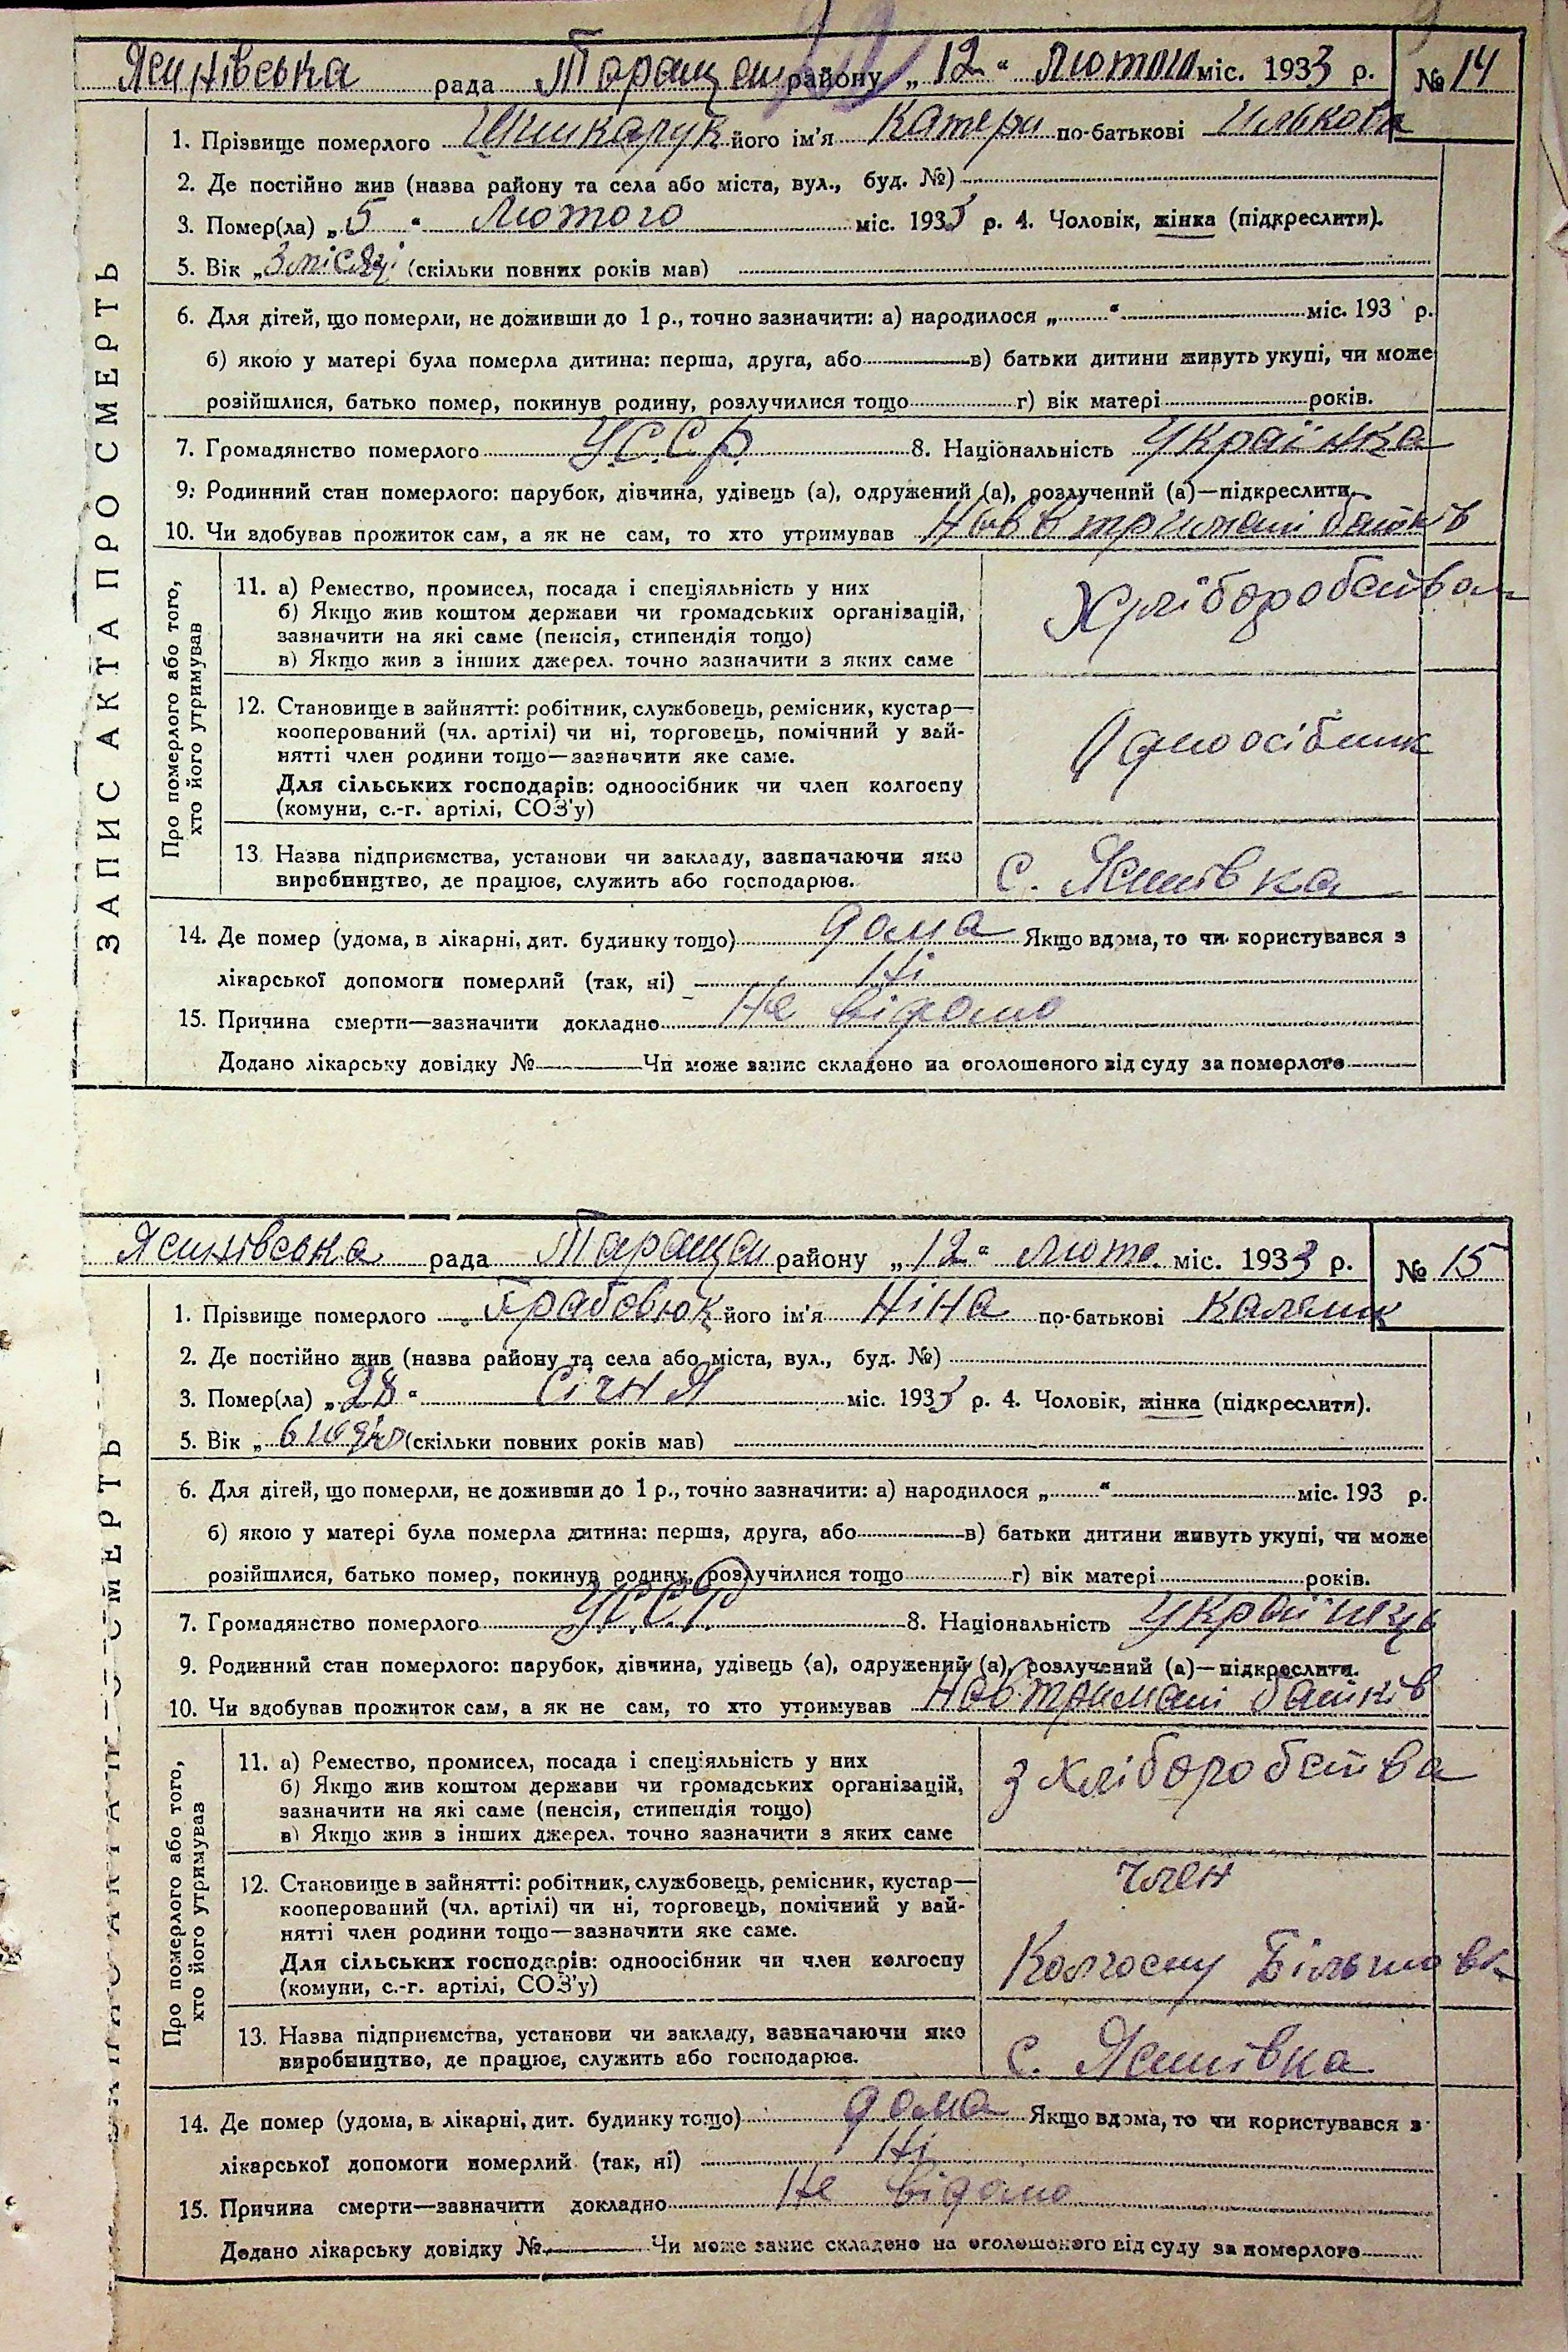 Ясинівська рада Таращан району „12“ Лютого міс. 1933 р. № 14
ЗАПИС АКТА ПРО СМЕРТЬ
1. Прізвище померлого його ім'я Катери по-батькові Ількова
2. Де постійно жив (назва району та села або міста, вул., буд. №)
3. Помер(ла) „5“ Лютого міс. 1933 р. 4. Чоловік, жінка (підкреслити).
5. Вік „3 місяці (скільки повних років мав)
6. Для дітей, що померли, не доживши до 1 р., точно зазначити: а) народилося „ “ міс. 193 р.
б) якою у матері була померла дитина: перша, друга, або в) батьки дитини живуть укупі, чи може
розійшлися, батько помер, покинув родину, розлучилися тощо г) вік матері років.
7. Громадянство померлого У.С.С.Р. 8. Національність Українка
9. Родинний стан померлого: парубок, дівчина, удівець (а), одружений (а), розлучений (а)—підкреслити.
10. Чи здобував прожиток сам, а як не сам, то хто утримував На втриманні батьків
Про померлого або того,
хто його утримував
11. а) Ремество, промисел, посада і спеціяльність у них
б) Якщо жив коштом держави чи громадських організацій,
зазначити на які саме (пенсія, стипендія тощо)
в) Якщо жив з інших джерел. точно зазначити з яких саме
Хліборобства
12. Становище в зайнятті: робітник, службовець, ремісник, кустар—
кооперований (чл. артілі) чи ні, торговець, помічний у зай-
нятті член родини тощо—зазначити яке саме.
Для сільських господарів: одноосібник чи член колгоспу
(комуни, с.-г. артілі, СОЗ'у)
Одноосібник
13. Назва підприємства, установи чи закладу, зазначаючи яко
виробництво, де працює, служить або господарює.
с. Ясинівка
14. Де помер (удома, в лікарні, дит. будинку тощо) дома Якщо вдома, то чи користувався з
лікарської допомоги померлий (так, ні) Ні
15. Причина смерти—зазначити докладно Не відомо
Додано лікарську довідку № Чи може запис складено на оголошеного від суду за померлого
Ясинівська рада Таращан району „12“ Люто. міс. 1933 р. № 15
ЗАПИС АКТА ПРО СМЕРТЬ
1. Прізвище померлого Грабовюк його ім'я Ніна по-батькові Каленик
2. Де постійно жив (назва району та села або міста, вул., буд. №)
3. Помер(ла) „28“ Січня міс. 1933 р. 4. Чоловік, жінка (підкреслити).
5. Вік „ (скільки повних років мав)
6. Для дітей, що померли, не доживши до 1 р., точно зазначити: а) народилося „ “ міс. 193 р.
б) якою у матері була померла дитина: перша, друга, або в) батьки дитини живуть укупі, чи може
розійшлися, батько помер, покинув родину, розлучилися тощо г) вік матері років.
7. Громадянство померлого У.С.С.Р. 8. Національність
9. Родинний стан померлого: парубок, дівчина, удівець (а), одружений (а), розлучений (а)—підкреслити.
10. Чи здобував прожиток сам, а як не сам, то хто утримував На втриманні батьків
Про померлого або того,
хто його утримував
11. а) Ремество, промисел, посада і спеціяльність у них
б) Якщо жив коштом держави чи громадських організацій,
зазначити на які саме (пенсія, стипендія тощо)
в) Якщо жив з інших джерел. точно зазначити з яких саме
З хліборобства
12. Становище в зайнятті: робітник, службовець, ремісник, кустар—
кооперований (чл. артілі) чи ні, торговець, помічний у зай-
нятті член родини тощо—зазначити яке саме.
Для сільських господарів: одноосібник чи член колгоспу
(комуни, с.-г. артілі, СОЗ'у)
член
Колгоспу Більшовик
13. Назва підприємства, установи чи закладу, зазначаючи яко
виробництво, де працює, служить або господарює.
с. Ясинівка
14. Де помер (удома, в лікарні, дит. будинку тощо) дома Якщо вдома, то чи користувався з
лікарської допомоги померлий (так, ні) Ні
15. Причина смерти—зазначити докладно Не відомо
Додано лікарську довідку № Чи може запис складено на оголошеного від суду за померлого